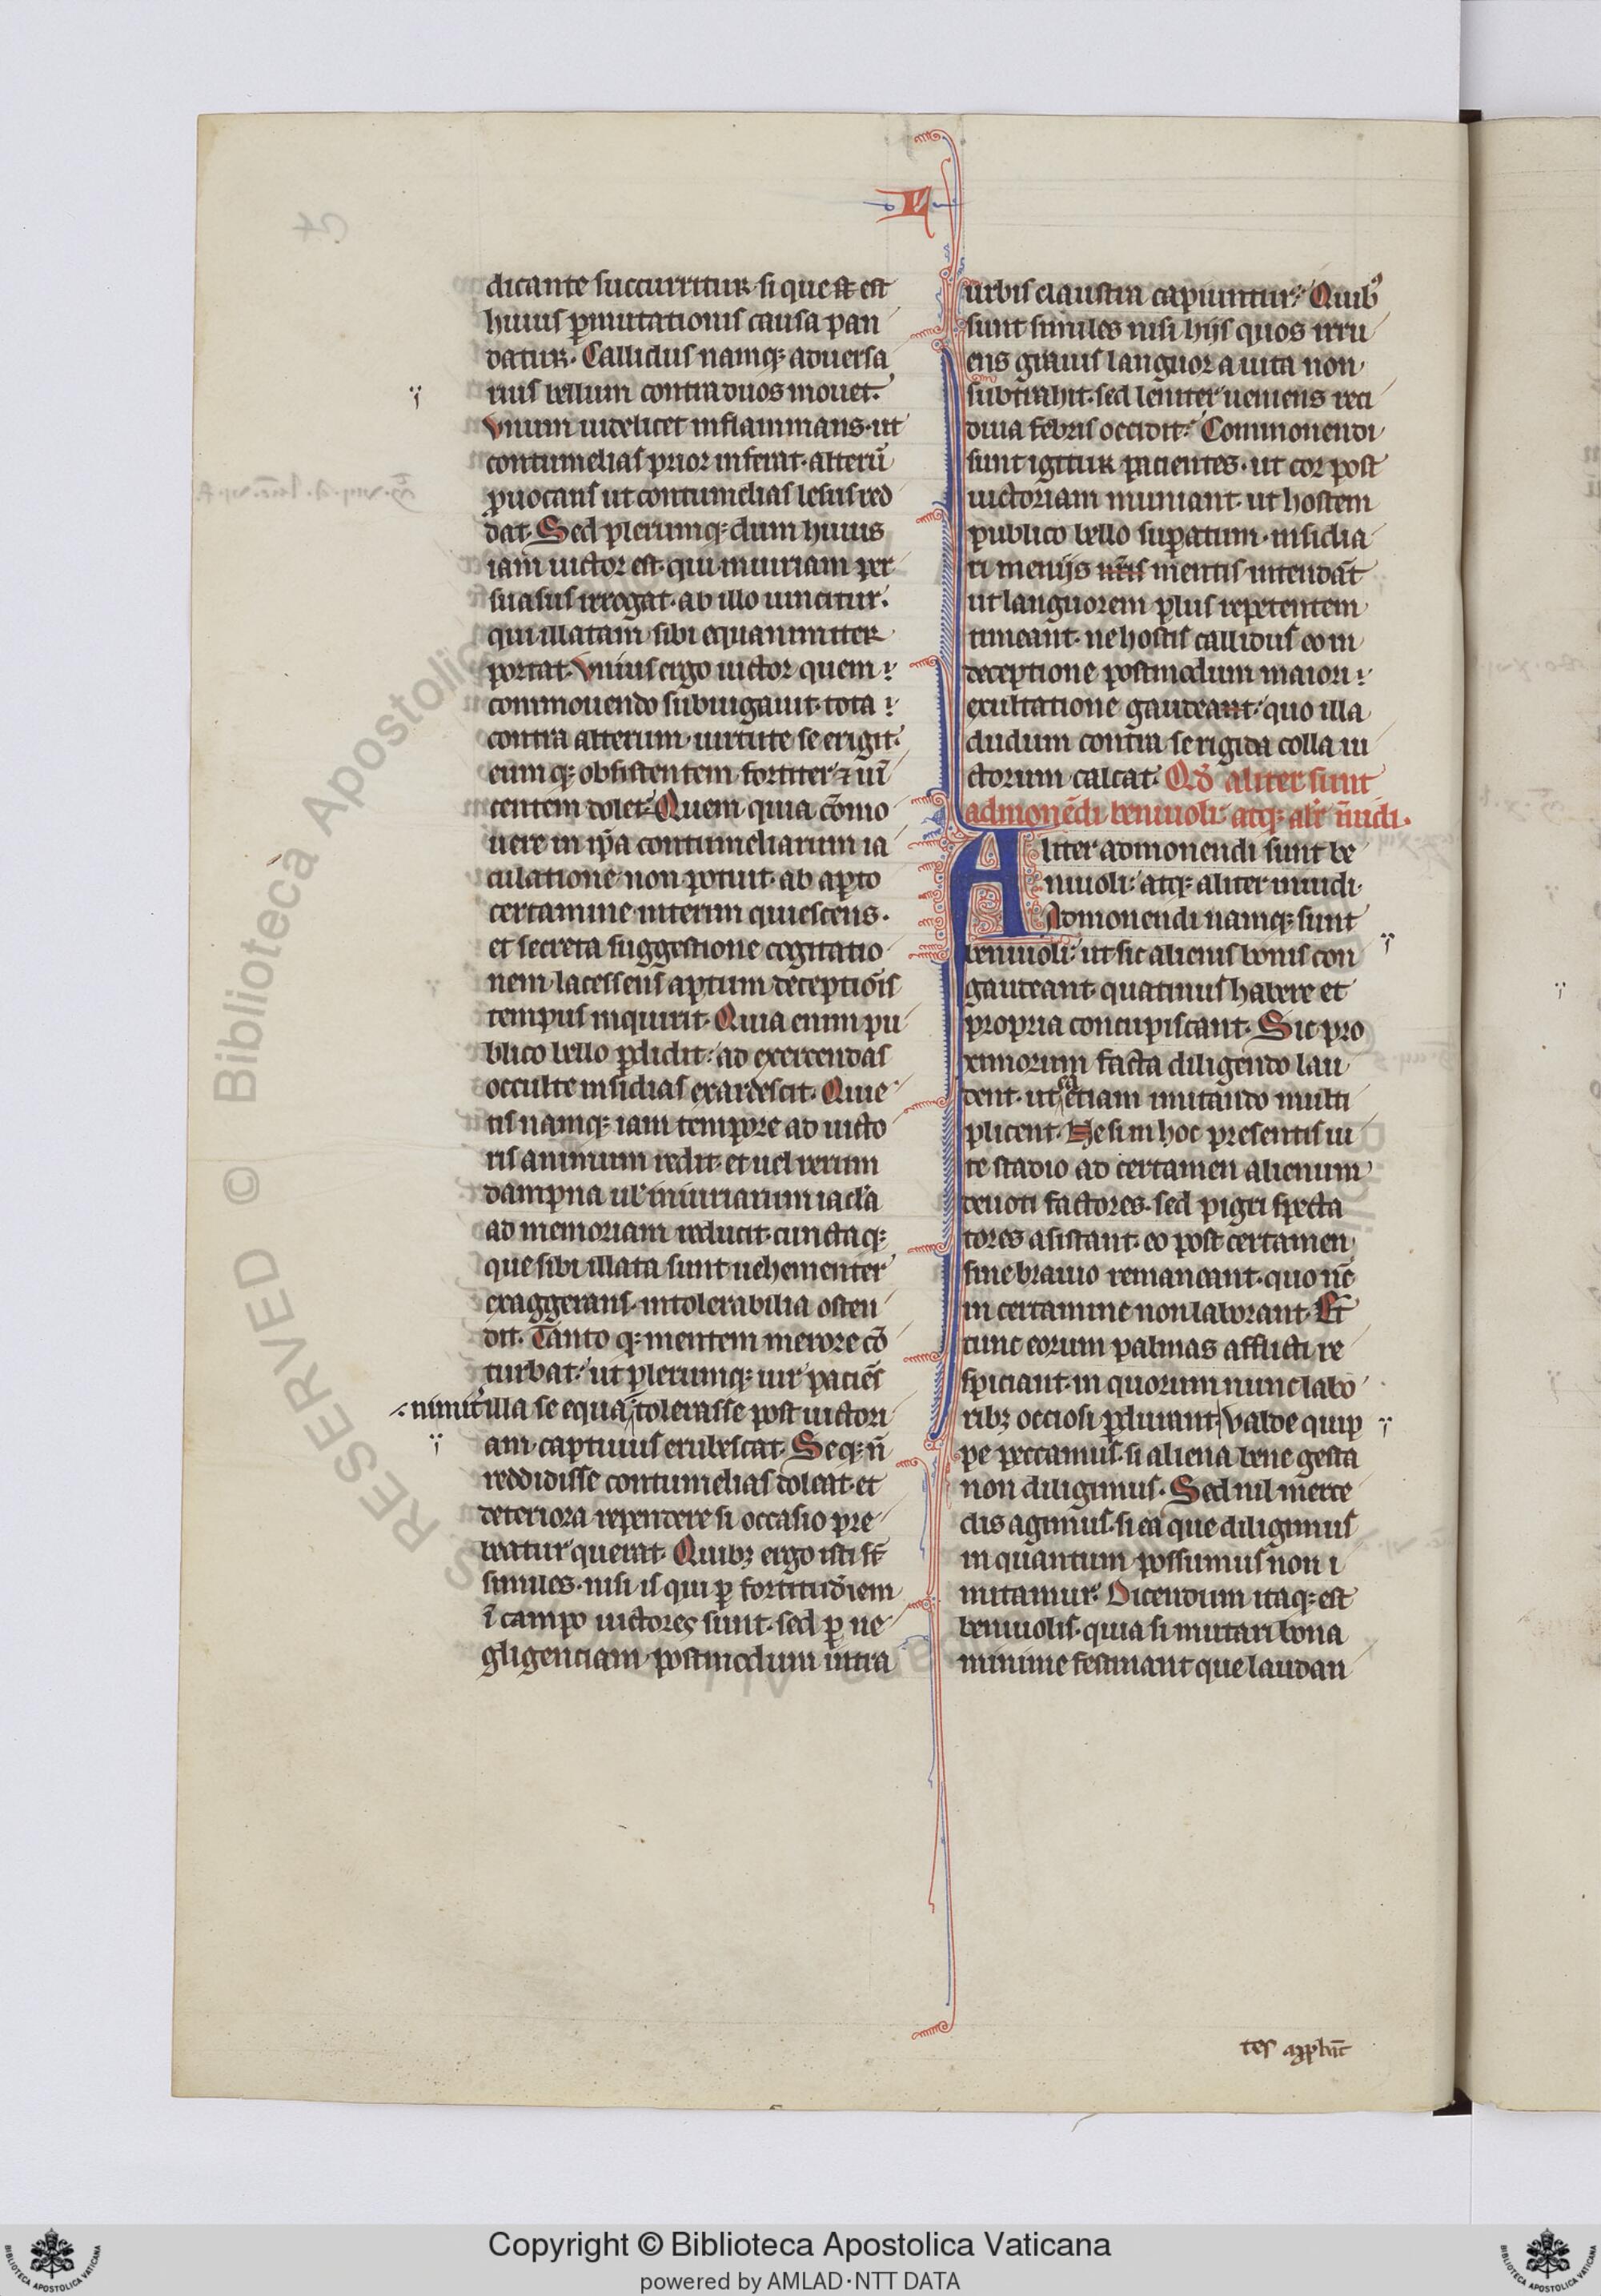 L
dicante succurritur si que st est
huius ꝑmutationis causa pan
datur. Callidus namqꝫ aduersa
rius bellum contra duos mouet.
vnum uidelicet inflammans. ut
contumelias prior inferat. alterū
ꝓuocans ut contumelias lesus red
dat. Sed plerumqꝫ dum huius
iam uictor est. qui iniuriam per
suasus irrogat. ab illo uincitur.
qui illatam sibi equanimiter
portat. vnius ergo uictor quem
commouendo subiugauit. tota
contra alterum uirtute se erigit.
eumqꝫ obsistentem fortiter ⁊ uī
centem dolet. Quem quia cōmo
uere in ip̄a contumeliarum ia
culatione non potuit. ab aꝑto
certamine interim quiescens.
et secreta suggestione cogitatio
nem lacessens aptum deceptiōis
tempus inquirit. Quia enim pu
blico bello ꝑdidit. ad exercendas
occulte insidias exardescit. Quie
tis namqꝫ iam tempore ad uicto
ris animum redit. et uel rerum
dampna ul' iniuriarum iacl'a
ad memoriam reducit. cunctaqꝫ
que sibi illata sunt uehementer
exaggerans. intolerabilia osten
dit. Tanto qꝫ mentem merore cō
turbat. ut plerumqꝫ uir paciēs
nimit' illa se equa tolerasse post uictori
am captiuus erubescat. Seqꝫ n̄
reddidisse contumelias doleat. et
deteriora rependere si occasio pre
beatur querat. Quibꝫ ergo isti st̄
similes. nisi is qui ꝑ fortitudīem
ī campo uictores sunt. sed ꝑ ne
gligenciam postmodum intra
urbis claustra capiuntur. Quibꝰ
sunt similes nisi hijs quos irru
ens grauis languor a uita non
subtrahit. sed leniter ueniens reci
diua febris occidit. Commonendi
sunt igitur pacientes. ut cor post
uictoriam muniant. ut hostem
publico bello suꝑatum. insidia
ri menijs mentis intendāt
ut languorem plus repetentem
timeant. ne hostis callidus eo in
deceptione postmodum maiori
exultatione gaudeant. quo illa
dudum contra se rigida colla ui
ctorum calcat. Qd̄ aliter sunt
admonēdi beniuoli. atqꝫ alr̄ īuidi.
Aliter admonendi sunt be
niuoli. atqꝫ aliter inuidi.
Admonendi namqꝫ sunt
beniuoli. ut sic alienis bonis con
gaudeant. quatinus habere et
propria concupiscant. Sic pro
ximorum facta diligendo lau
dent. ut ea etiam imitando multi
plicent. Ne si in hoc presentis ui
te stadio ad certamen alienum
deuoti factores. sed pigri specta
tores asistant. eo post certamen
sine brauio remaneant. quo nc̄
in certamine non laborant. Et
tunc eorum palmas afflicti re
spiciant. in quorum nunc labo
ribꝫ occiosi ꝑdurant. valde quip
pe peccamus. si aliena bene gesta
non diligimus. Sed nil merce
dis agimus. si ea que diligimus
in quantum possumus non i
mitamur. Dicendum itaqꝫ est
beniuolis. quia si imitari bona
minime festinant que laudan
Copyright © Biblioteca Apostolica Vaticana
powered by AMLAD·NTT DATA